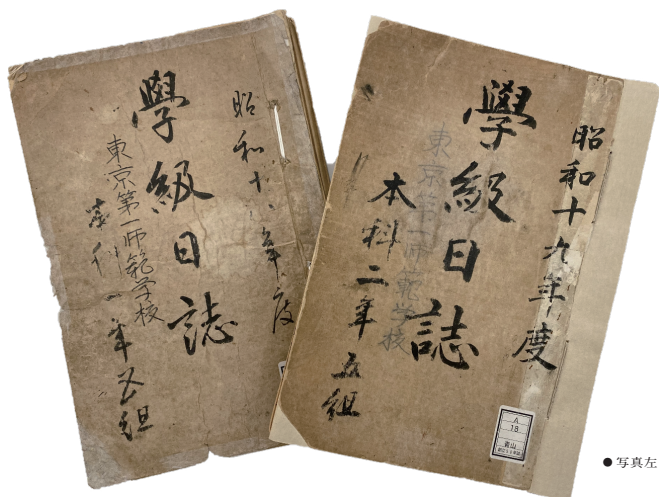 昭和十八年度
學級日誌
東京第一師範学校
本科一年五組
昭和十九年度
學級日誌
東京第一師範学校
本科二年五組
A
18
青山
●写真左